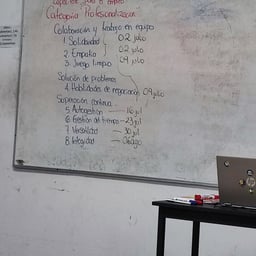 Categoría Profesionalizacion
Colaboración y trabajo en equipo
1. Solidaridad 02 julio
2. Empatía 02 julio
3. Juego limpio 09 julio
Solución de problemas
4. Habilidades de negociación 09 julio
Superación continua
5. Autogestión — 16 jul
6. Gestión del tiempo — 23 jul
7. Versatilidad — 30 jul
8. Integridad — 06 ago
hp